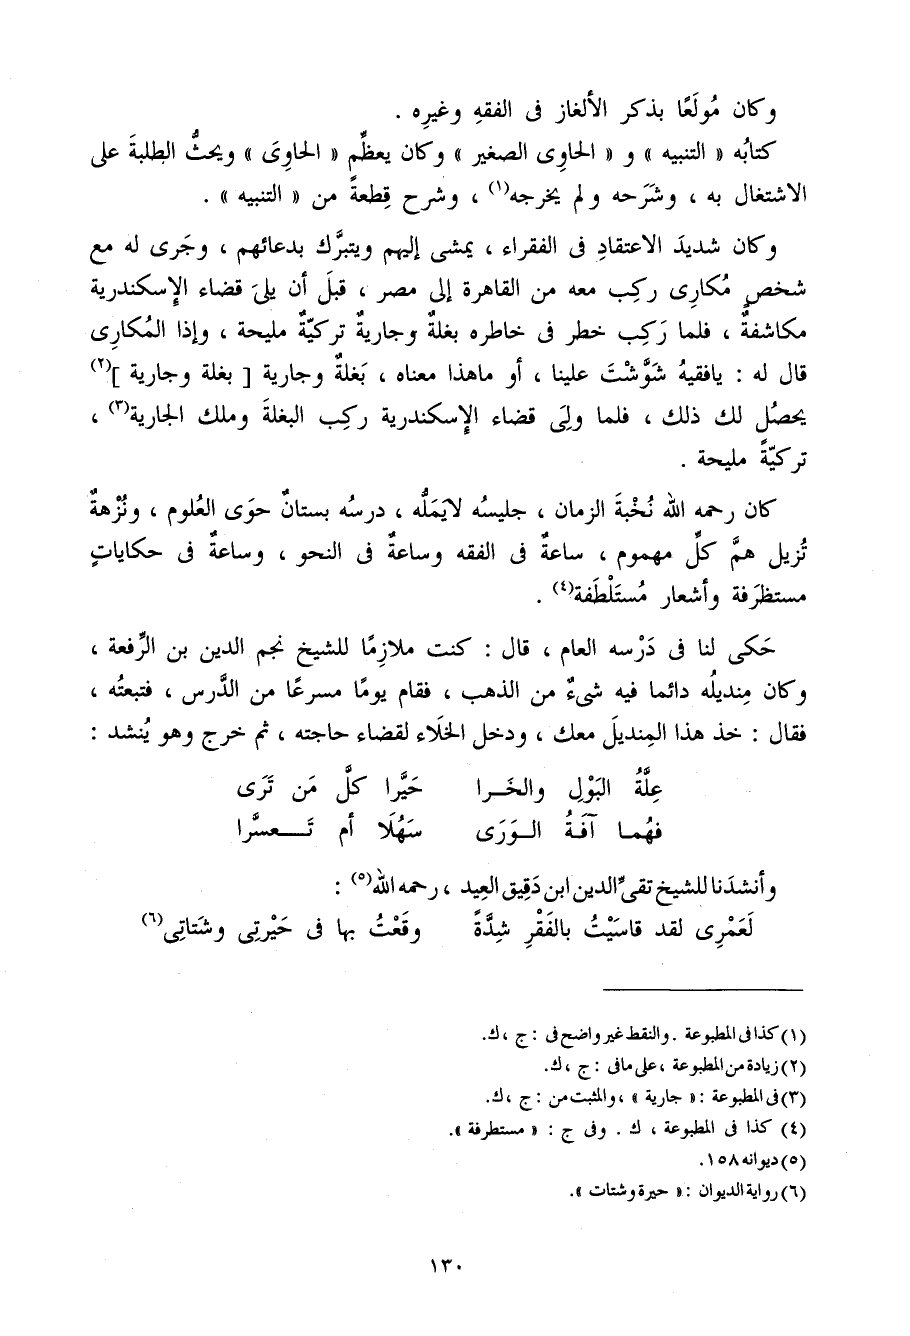 وكان مُولَعًا بذكر الألغاز فى الفقهِ وغيرِه .
كتابُه « التنبيه » و « الحاوِى الصغير » وكان يعظِّم « الحاوِىَ » ويحثُّ الطلبةَ على
الاشتغال به ، وشَرَحه ولم يخرجه(١) ، وشرح قِطعةً من « التنبيه » .
وكان شديدَ الاعتقادِ فى الفقراء ، يمشى إليهم ويتبرَّك بدعائهم ، وجَرى له مع
شخصٍ مُكارِى ركِب معه من القاهرة إلى مصر ، قبلَ أن يلىَ قضاء الإِسكندرية
مكاشفةٌ ، فلما رَكِب خطر فى خاطره بغلةٌ وجاريةٌ تركيّةٌ مليحة ، وإذا المُكارِى
قال له : يافقيهُ شَوَّشْتَ علينا ، أو ماهذا معناه ، بَغلةٌ وجارية [ بغلة وجارية ](٢)
يحصُل لك ذلك ، فلما ولِىَ قضاءَ الإِسكندرية ركِب البغلةَ وملك الجارية(٣) ،
تركيّةً مليحة .
كان رحمه الله نُخْبةَ الزمان ، جليسُه لايَمَلُّه ، درسُه بستانٌ حوَى العُلوم ، ونُزْهةٌ
تُزيل همَّ كلِّ مهموم ، ساعةٌ فى الفقه وساعةٌ فى النحو ، وساعةٌ فى حكاياتٍ
مستظرَفة وأشعار مُستَلْطَفة(٤) .
حَكى لنا فى دَرْسه العام ، قال : كنت ملازِمًا للشيخ نجم الدين بن الرِّفعة ،
وكان مِنديلُه دائما فيه شىءٌ من الذهب ، فقام يومًا مسرعًا من الدَّرس ، فتبعتُه ،
فقال : خذ هذا المِنديلَ معك ، ودخل الخَلَاء لقضاء حاجته ، ثم خرج وهو يُنشد :
عِلَّةُ البَوْلِ والخَــرا حَيَّرا كلَّ مَن تَرَى
فهُمـا آفَـةُ الــوَرَى سَهُلَا أم تَــعسرَّا
وأنشدَنا للشيخ تقىِّ الدين ابن دَقِيق العِيد ، رحمه الله(٥) :
لَعَمْرِى لقد قاسَيْتُ بالفَقْرِ شِدَّةً وقَعْتُ بها فى حَيْرتِى وشَتاتِى(٦)
(١) كذا فى المطبوعة . والنقط غير واضح فى : ج ، ك.
(٢) زيادة من المطبوعة ، على مافى : ج ، ك.
(٣) فى المطبوعة : « جارية » ، والمثبت من : ج ، ك.
(٤) كذا فى المطبوعة ، ك . وفى ج : « مستطرفة ».
(٥) ديوانه ١٥٨.
(٦) رواية الديوان : « حيرة وشتات ».
١٣٠